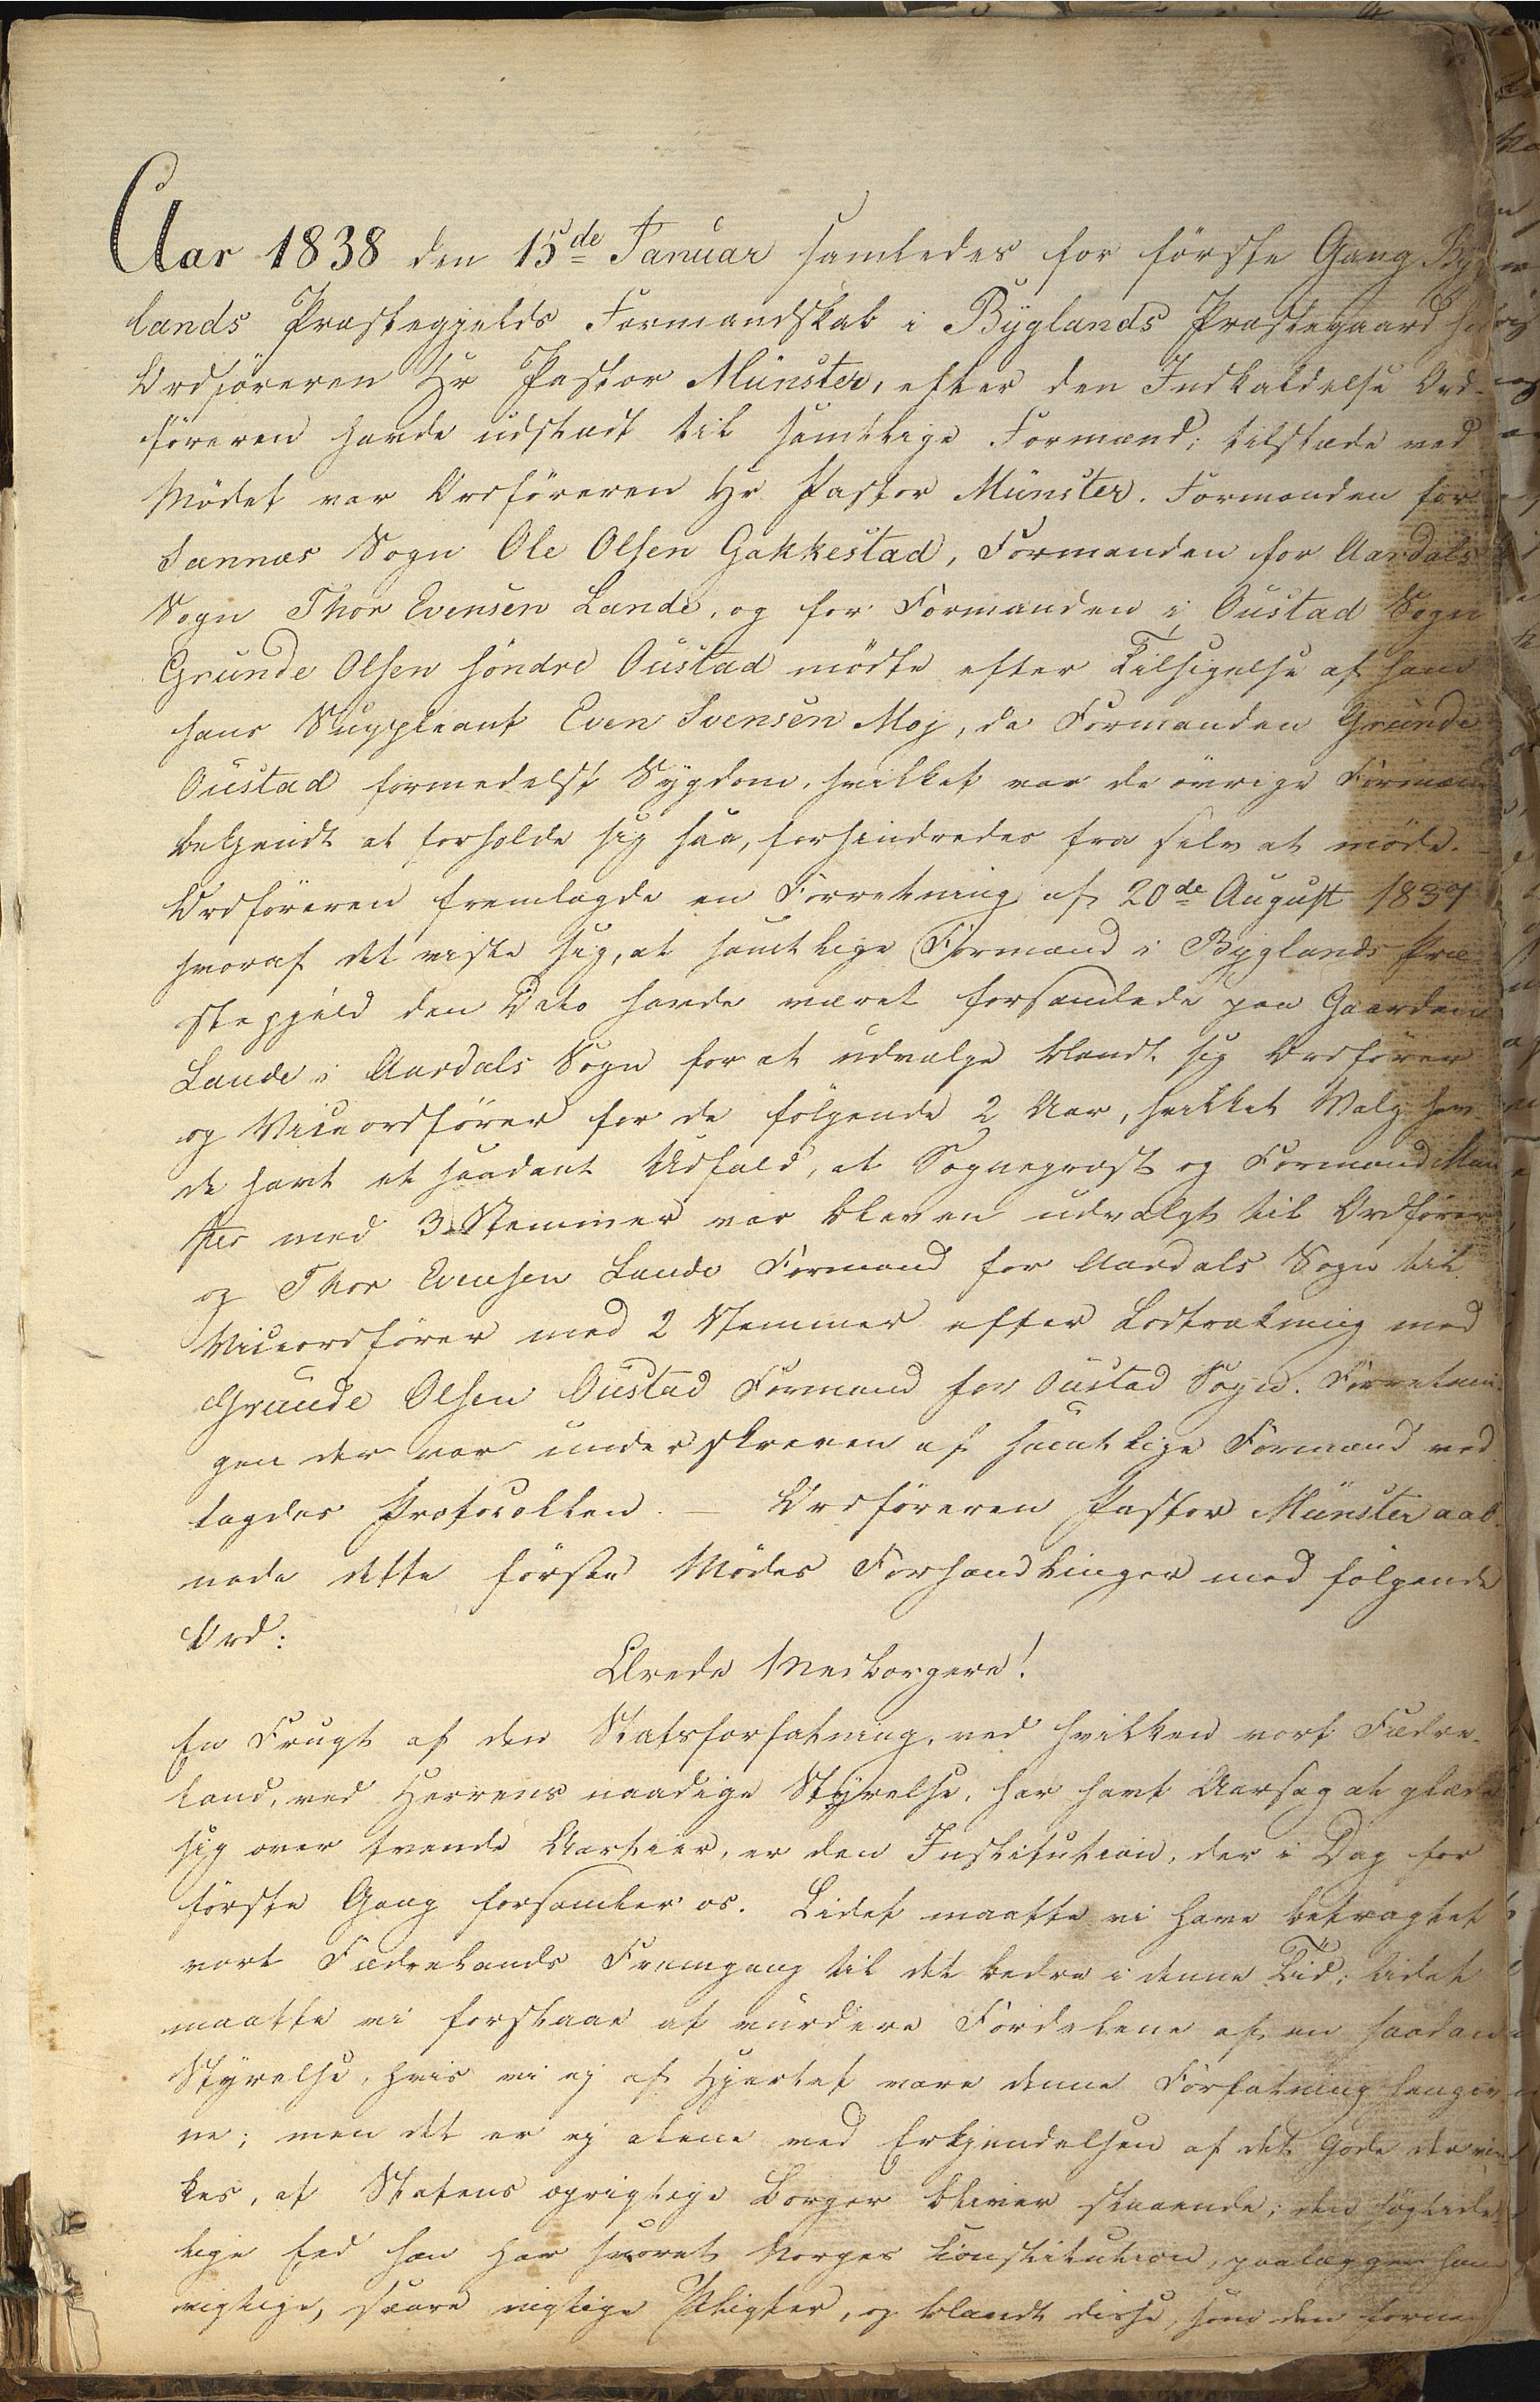 Aar 1838 den 15de Januar samledes for förste Gang Byg
lands Præstegjelds Formandskab i Byglands Præstegaard hos
Ordföreren Hr Pastor Münster, efter den Indkaldelse Ord-
föreren havde udstædt til samtlige Formænd; tilstæde ved
Mödet var Ordföreren Hr Pastor Münster. Formanden for
Sannæs Sogn Ole Olsen Gakkestad, Formanden for Aardals
Sogn Thor Evensen Lande, og for Formanden i Oustad Sogn
Grunde Olsen söndre Oustad mödte efter Tilsigelse af ham
hans Suppleant Even Svensen Moj, da Formanden Grunde
Oustad formedelst Sygdom, hvilket var de övrige Formænd
bekjendt at forholde sig saa, forhindredes fra selv at möde.
Ordföreren fremlagde en Forretning af 20de August 1837
hvoraf det viste sig, at samtlige Formænd i Byglands Præ
stegjeld den Dato havde været forsamlede paa Gaarden
Lande i Aardals Sogn for at udvælge blandt sig Ordförer
og Viceordförer for de fölgende 2 Aar, hvilket Valg hav
de havt et saadant Udfald, at Sognepræst og Formand Mün
ster med 3 Stemmer var bleven udvalgt til Ordförer
og Thor Evensen Lande Formand for Aardals Sogn til
Viceordförer med 2 Stemmer efter Lodtrækning med
Grunde Olsen Oustad Formand for Oustad Sogn. Forretnin
gen der var underskreven af samtlige Formænd ved
lagdes Protocollen. — Ordföreren Pastor Münster aab-
nede dette förste Mödes Forhandlinger med fölgende
Ord:
Ærede Medborgere!
En Frugt af den Statsforfatning, ved hvilken vort Fædre-
land, ved Herrens naadige Styrelse, har havt Aarsag at glæde
sig over tvende Aartier, er den Institution, der i Dag for
förste Gang forsamler os. Lidet maatte vi have betragtet
vort Fædrelands Fremgang til det bedre i denne Tid; lidet
maatte vi forstaae at vurdere Fordelene af en saadan
Styrelse, hvis vi ej af Hjertet vare denne Forfatning hengiv
ne; men det er ej alene ved Erkjendelsen af det Gode der
kes, at Statens oprigtige Borger bliver staaende; den höitide-
lige Eed han har svoret Norges Constitution, paalægger ham
vigtige, saare vigtige Pligter, og blandt disse, som den